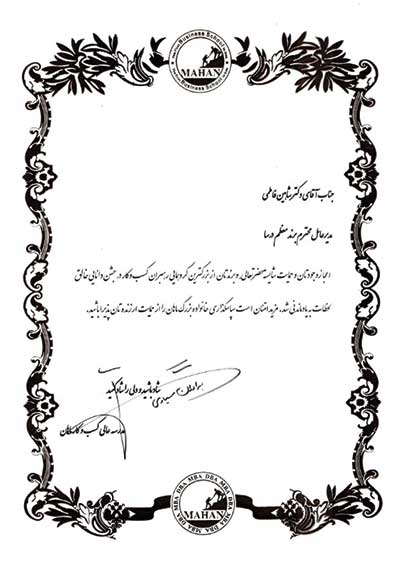 MAHAN
Business School
جناب آقای دکتر شاهین فاطمی
مدیر عامل محترم برند معظم درسا
اعجاز وجودتان و حمایت شایسته حضرتعالی و برندتان از بزرگترین گردهمایی رهبران کسب و کار در جشن دانایی خالق
لحظات به یادماندنی شد. مزید امتنان است سپاسگذاری خانواده بزرگ ماهان را از حمایت ارزنده‌تان پذیرا باشید.
شاد باشید و دلی را شاد کنید
مدرسه عالی کسب و کار ماهان
MBA DBA MBA DBA
MAHAN